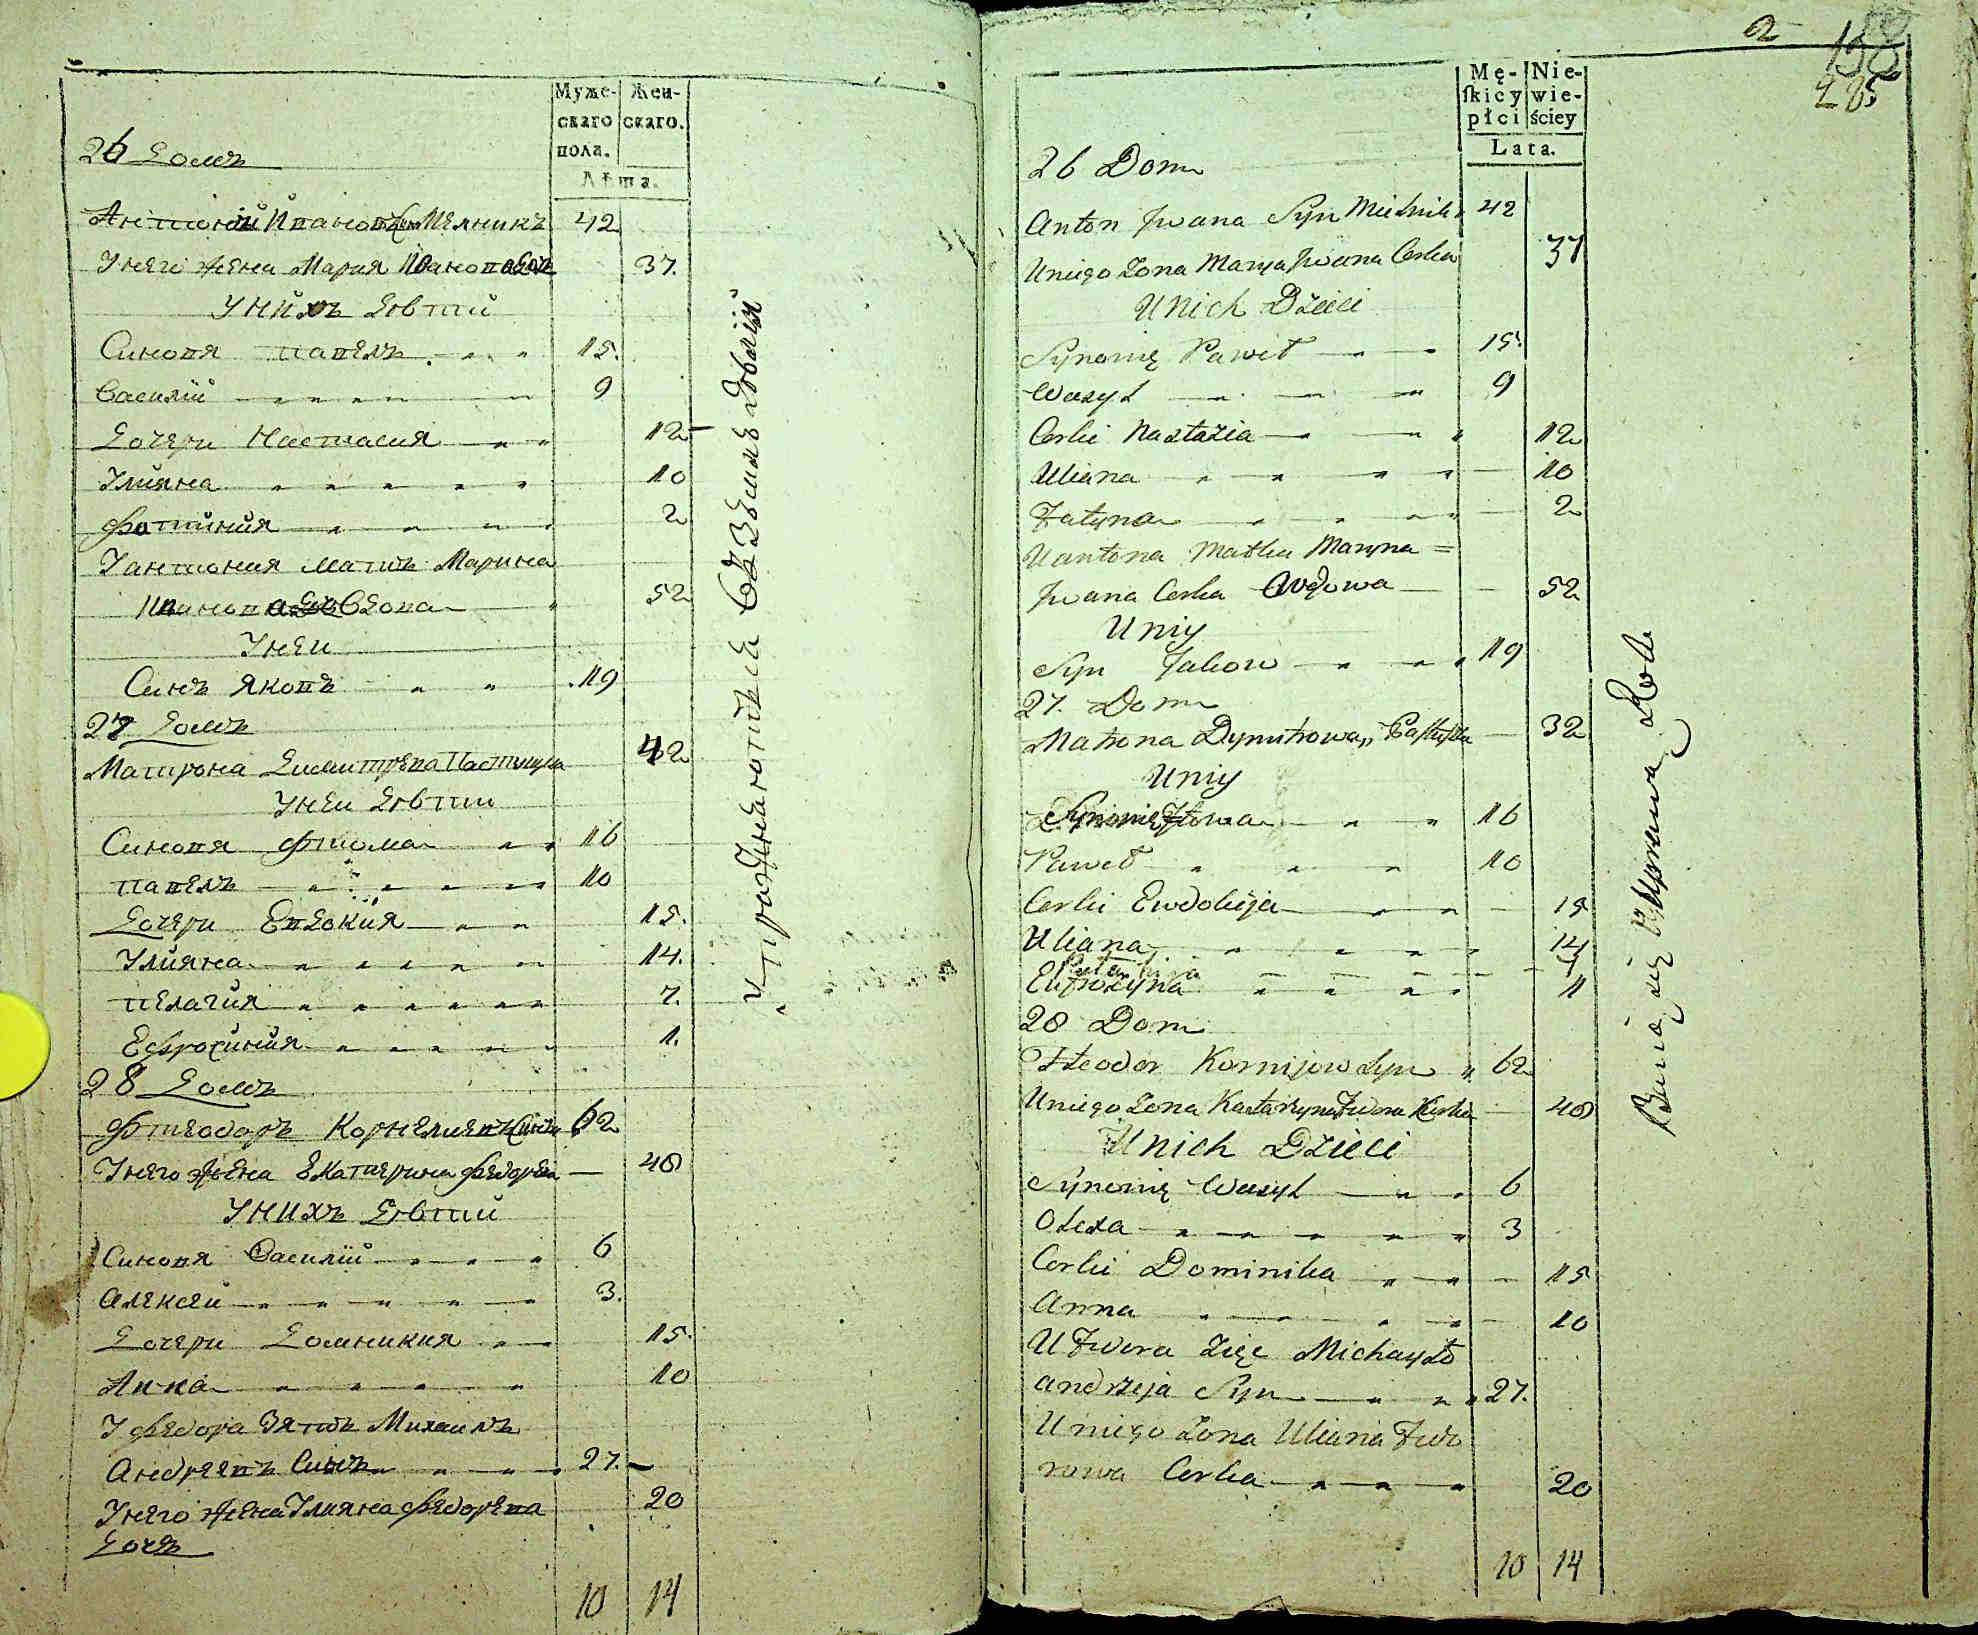 Муже-
скаго
пола.
Жен-
скаго.
Лѣта.
26 домъ
Антоній Ивановъ Синъ Мелникъ 42
Унего жена Мария Иванова дочъ 37.
Унихъ дѣти
Синовя Павелъ 15.
Василій 9
Дочери Настасия 12
Улияна 10
Фотиния 2
Уантония мать Марина
Иванова дочъ вдова 52
Унеи
Синъ Яковъ 19
27 домъ
Матрона Димитрева Пастушка 42
Унеи дѣти
Синовя Фтома 16
Павелъ 10
Дочери Евдокия 15.
Улияна 14.
Пелагия 7.
Ефросиния 1.
28 домъ
Фтеодоръ Корнелиевъ Синъ 62
Унего жена Екатерина Федорва 48
Унихъ дѣти
Синовя Василій 6
Алексеи 3.
Дочери Домникия 15.
Анна 10
Уфедора Зять Михаилъ
Андреевъ Синъ 27.
Унего жена Улияна Федорева 20
дочъ
10 14
Упражняются въ земледѣлія
2
138
285
Mę-
skiey
płci
Nie-
wie-
ściey
Lata.
26 Dom
Anton Jwana Syn Mielnik 42
Uniego Żona Marya Jwana Corka 37
Unich Dzieci
Synowię Paweł 15.
Wasyl 9
Corki Nastazia 12
Uliana 10
Fatyna 2
Uantona Matka Maryna =
Jwana Corka Wdowa 52
Uniy
Syn Jakow 19
27. Dom
Matrona Dymitrowa Pastuszka 32
Uniy
Synowię Ftoma 16
Paweł 10
Corki Ewdokija 15
Uliana 14
7
Eufrozyna 1
28 Dom
Fteodor Kornijow Syn 62
Uniego Żona Katarzyna Fedora Corka 48
Unich Dzieci
Synowię Wasyl 6
Olexa 3
Corki Dominika 15
Anna 10
U Fedora Zięc Michayło
Andrzeja Syn 27.
Uniego Żona Uliana Fedo
rowa Corka 20
10 14
Bawią się Uprawą Roli